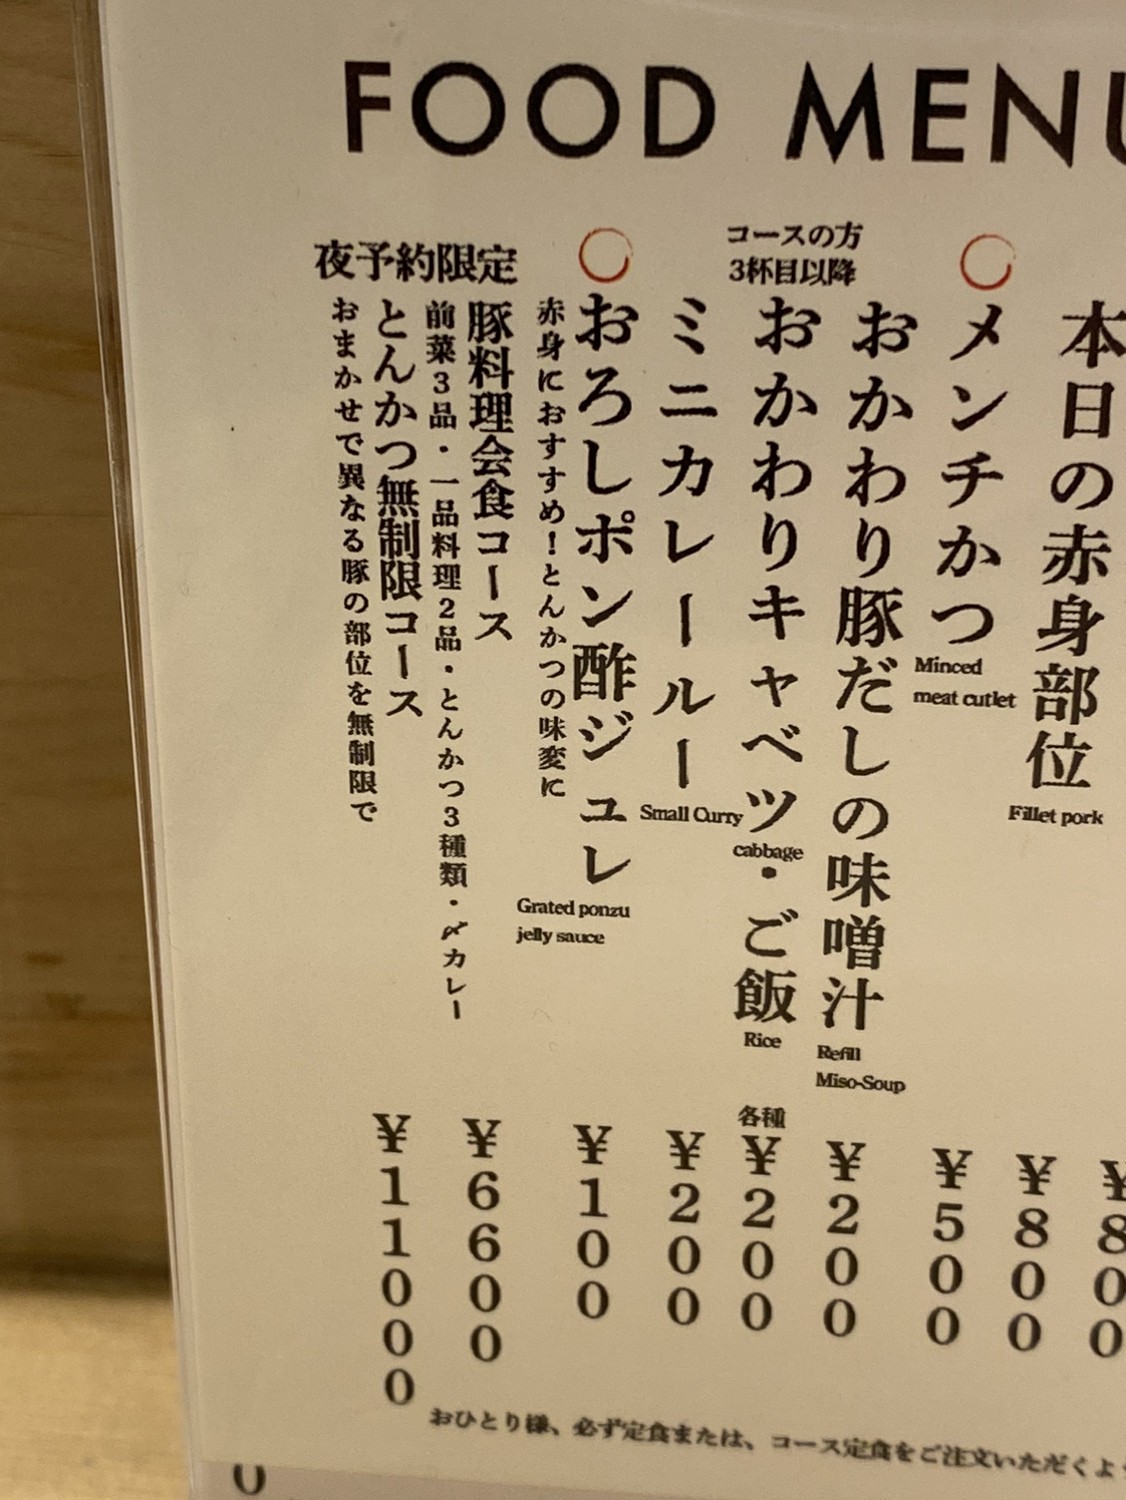 FOOD MENU
本日の赤身部位
Fillet pork
¥800
メンチかつ
Minced
meat cutlet
¥500
コースの方
3杯目以降
おかわり豚だしの味噌汁
Refill
Miso-Soup
¥200
おかわりキャベツ・ご飯
cabbage
Rice
各種
¥200
ミニカレールー
Small Curry
¥200
おろしポン酢ジュレ
Grated ponzu
jelly sauce
赤身におすすめ！とんかつの味変に
¥100
夜予約限定
豚料理会食コース
前菜3品・一品料理2品・とんかつ3種類・〆カレー
¥6600
とんかつ無制限コース
おまかせで異なる豚の部位を無制限で
¥11000
おひとり様、必ず定食または、コース定食をご注文いただくよ